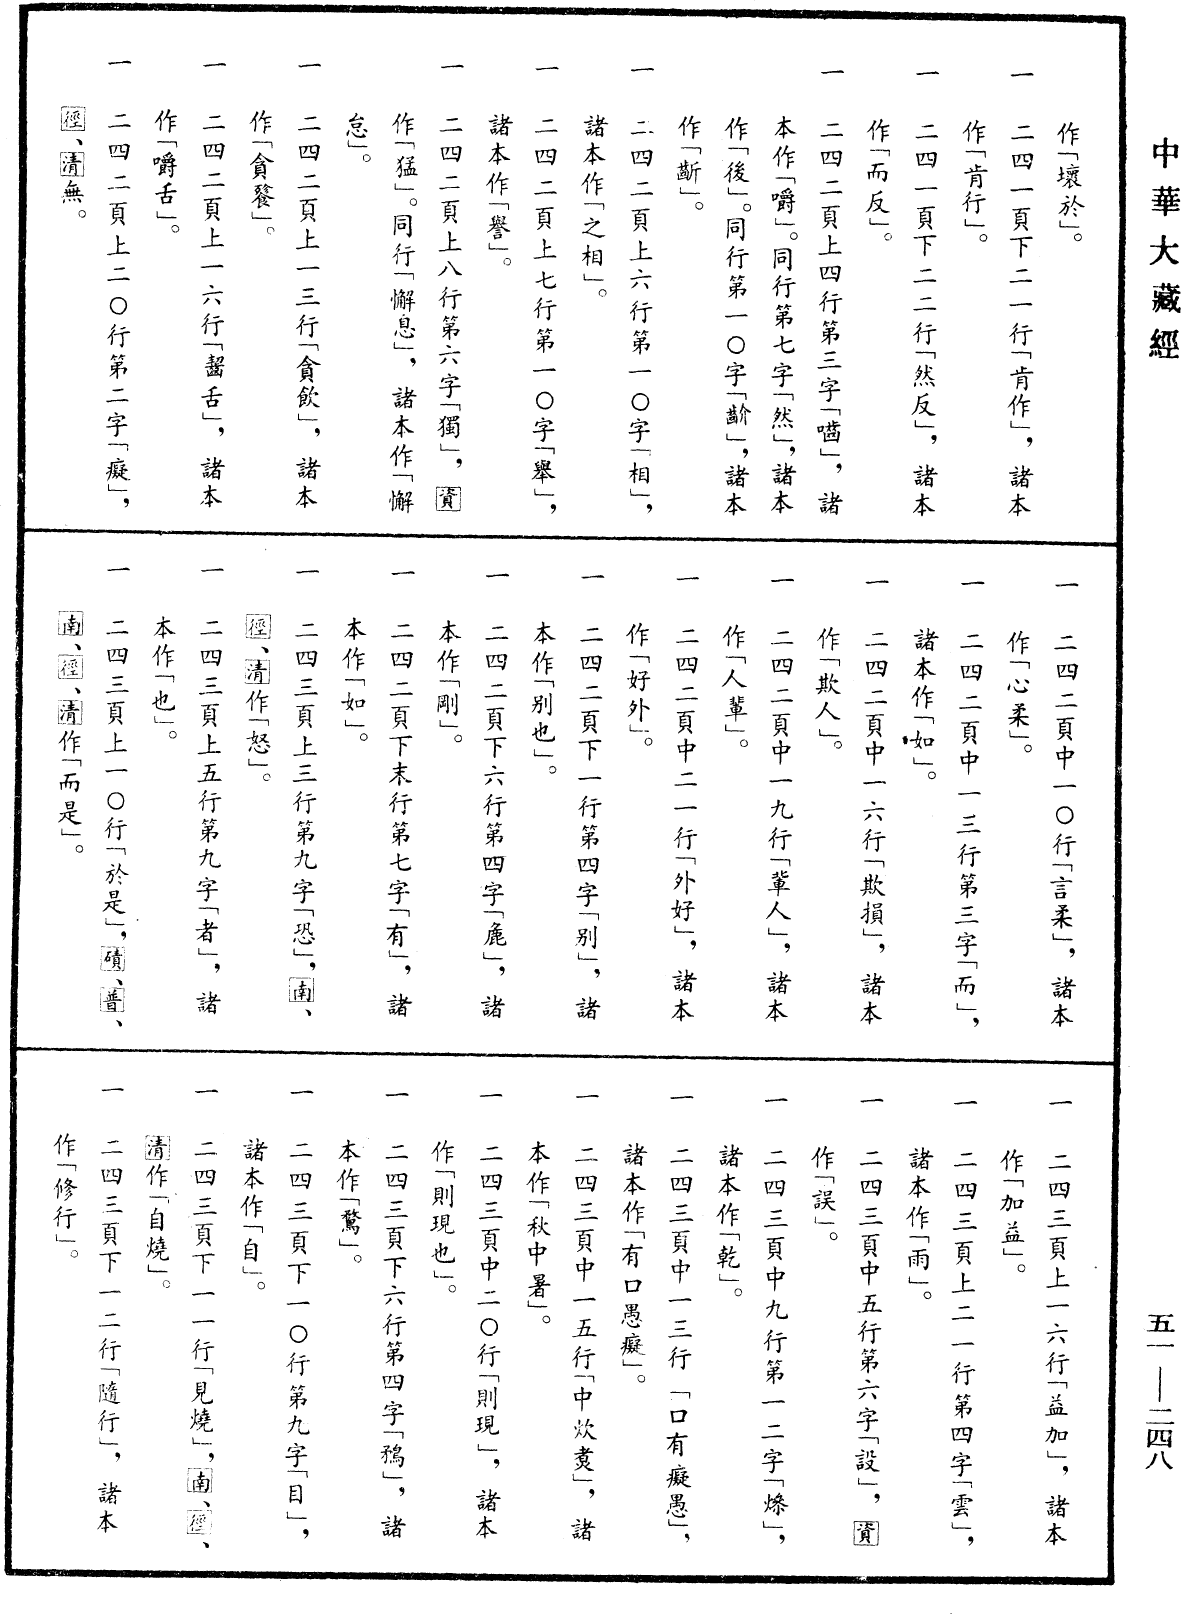 中華大藏經
五一——二四八
作「壞於」。
一 二四一頁下二一行「肯作」，諸本
作「肯行」。
一 二四一頁下二二行「然反」，諸本
作「而反」。
一 二四二頁上四行第三字「嚙」，諸
本作「嚼」。同行第七字「然」，諸本
作「後」。同行第一〇字「齘」，諸本
作「齗」。
一 二四二頁上六行第一〇字「相」，
諸本作「之相」。
一 二四二頁上七行第一〇字「舉」，
諸本作「譽」。
一 二四二頁上八行第六字「獨」，資
作「猛」。同行「懈息」，諸本作「懈
怠」。
一 二四二頁上一三行「貪飲」，諸本
作「貪餮」。
一 二四二頁上一六行「齧舌」，諸本
作「嚼舌」。
一 二四二頁上二〇行第二字「癡」，
徑、清無。
一 二四二頁中一〇行「言柔」，諸本
作「心柔」。
一 二四二頁中一三行第三字「而」，
諸本作「如」。
一 二四二頁中一六行「欺損」，諸本
作「欺人」。
一 二四二頁中一九行「輩人」，諸本
作「人輩」。
一 二四二頁中二一行「外好」，諸本
作「好外」。
一 二四二頁下一行第四字「別」，諸
本作「別也」。
一 二四二頁下六行第四字「麁」，諸
本作「剛」。
一 二四二頁下末行第七字「有」，諸
本作「如」。
一 二四三頁上三行第九字「恐」，南、
徑、清作「怒」。
一 二四三頁上五行第九字「者」，諸
本作「也」。
一 二四三頁上一〇行「於是」，磧、普、
南、徑、清作「而是」。
一 二四三頁上一六行「益加」，諸本
作「加益」。
一 二四三頁上二一行第四字「雲」，
諸本作「雨」。
一 二四三頁中五行第六字「設」，資
作「誤」。
一 二四三頁中九行第一二字「燥」，
諸本作「乾」。
一 二四三頁中一三行「口有癡愚」，
諸本作「有口愚癡」。
一 二四三頁中一五行「中炊煑」，諸
本作「秋中暑」。
一 二四三頁中二〇行「則現」，諸本
作「則現也」。
一 二四三頁下六行第四字「鵶」，諸
本作「鶩」。
一 二四三頁下一〇行第九字「目」，
諸本作「自」。
一 二四三頁下一一行「見燒」，南、徑、
清作「自燒」。
一 二四三頁下一二行「隨行」，諸本
作「修行」。